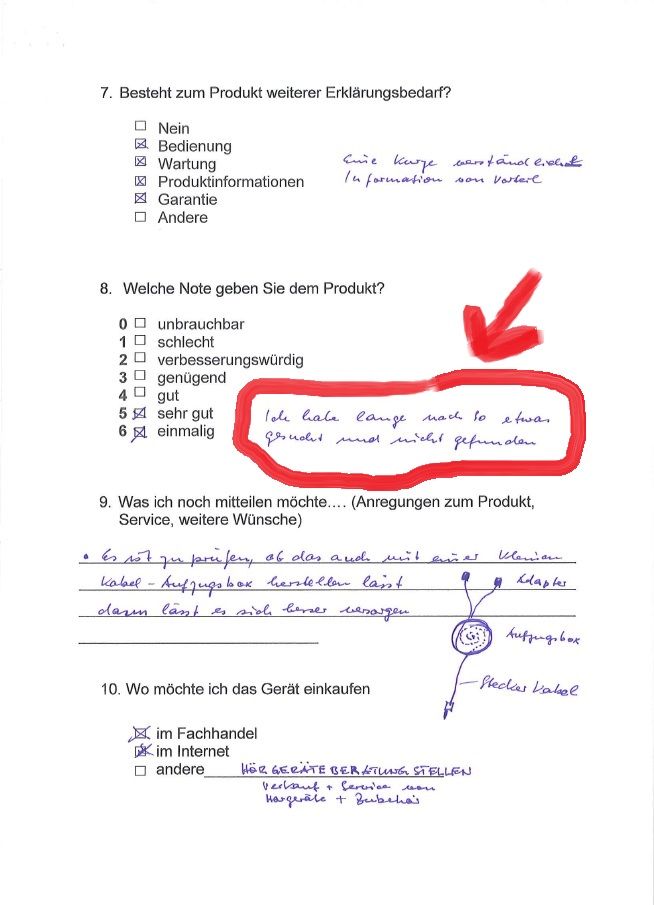 7. Besteht zum Produkt weiterer Erklärungsbedarf?
Nein
Bedienung
Wartung
Produktinformationen
Garantie
Andere
Eine kurze verständliche
Information von Vorteil
8. Welche Note geben Sie dem Produkt?
0 unbrauchbar
1 schlecht
2 verbesserungswürdig
3 genügend
4 gut
5 sehr gut
6 einmalig
Ich habe lange nach so etwas
gesucht und nicht gefunden
9. Was ich noch mitteilen möchte…. (Anregungen zum Produkt,
Service, weitere Wünsche)
• Es ist zu prüfen, ob das auch mit einer kleinen
Kabel - Aufzugsbox herstellen lässt
dann lässt es sich besser versorgen
Adapter
Aufzugsbox
Stecker Kabel
10. Wo möchte ich das Gerät einkaufen
im Fachhandel
im Internet
andere HÖRGERÄTEBERATUNGSTELLEN
Verkauf + Service von
Hörgeräte + Zubehör